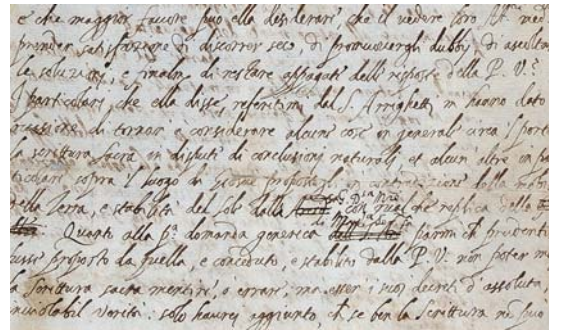 e che maggior favore può ella desiderare, che il vedere loro Alt. med
prender satisfazione di discorrer seco, di promuovergli dubbij, di ascolta
le soluzioni, e finalm. di restare appagati delle risposte della P. V.?
I particolari, che ella disse, referitimi dal S. Arrighetti, m'hanno dato
occasione di tornar a considerare alcune cose in generale circa 'l portar
la scrittura sacra in dispute di conclusioni naturali, et alcun altre in pa
ticolare sopra 'l luogo di Giosuè propostoli, in contradizione della mobi
della Terra, e stabilità del Sole dalla G. D. Madre con qualche replica della
Quanto alla p.a domanda generica di Mad.a Ser.a parmi che prudenti
fussi proposto da quella, e conceduto, e stabilito dalla P. V. non poter m
la Scrittura sacra mentire, o errare, ma esser i suoi decreti d'assoluta,
inviolabil verità. solo haurei aggiunto, che se ben la Scrittura nō può